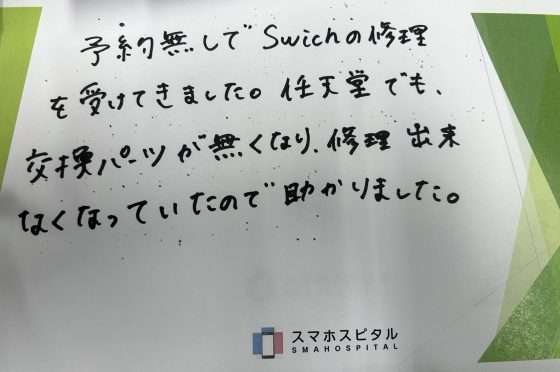 予約無しでSwichの修理
を受けてきました。任天堂でも、
交換パーツが無くなり、修理出来
なくなっていたので助かりました。
スマホスピタル
SMAHOSPITAL